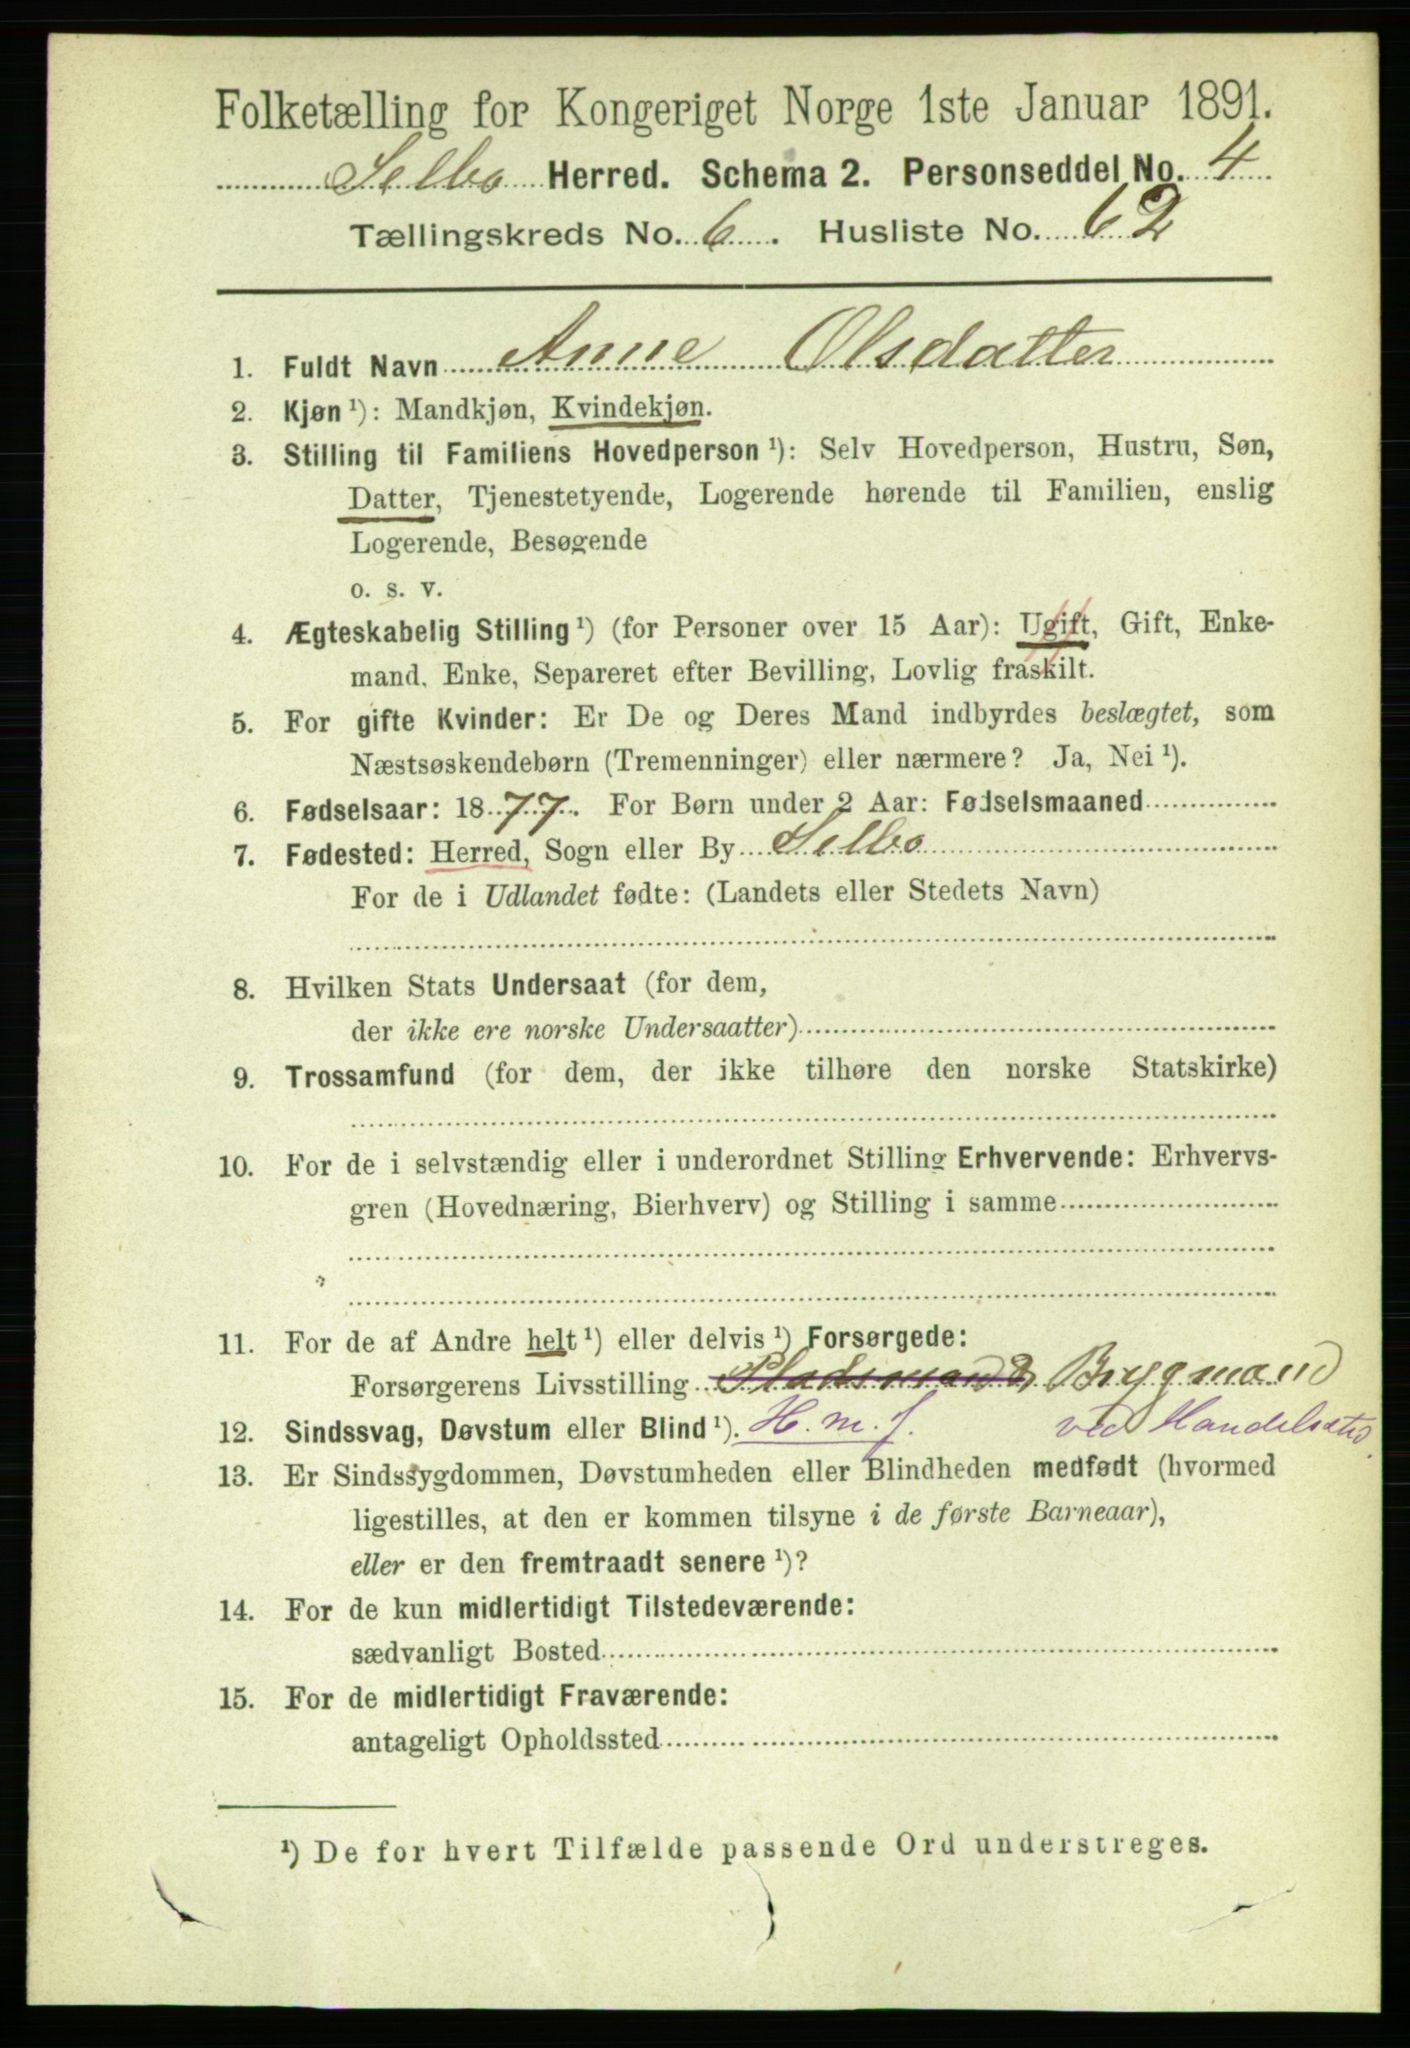 Folketælling for Kongeriget Norge 1ste Januar 1891.
Selbo Herred. Schema 2. Personseddel No. 4
Tællingskreds No. 6. Husliste No. 62
1. Fuldt Navn Anne Olsdatter
2. Kjøn ¹): Mandkjøn, Kvindekjøn.
3. Stilling til Familiens Hovedperson ¹): Selv Hovedperson, Hustru, Søn,
Datter, Tjenestetyende, Logerende hørende til Familien, enslig
Logerende, Besøgende
o. s. v.
4. Ægteskabelig Stilling ¹) (for Personer over 15 Aar): Ugift, Gift, Enke-
mand, Enke, Separeret efter Bevilling, Lovlig fraskilt.
5. For gifte Kvinder: Er De og Deres Mand indbyrdes beslægtet, som
Næstsøskendebørn (Tremenninger) eller nærmere? Ja, Nei ¹).
6. Fødselsaar: 1877. For Børn under 2 Aar: Fødselsmaaned
7. Fødested: Herred, Sogn eller By Selbo
For de i Udlandet fødte: (Landets eller Stedets Navn)
8. Hvilken Stats Undersaat (for dem,
der ikke ere norske Undersaatter)
9. Trossamfund (for dem, der ikke tilhøre den norske Statskirke)
10. For de i selvstændig eller i underordnet Stilling Erhvervende: Erhvervs-
gren (Hovednæring, Bierhverv) og Stilling i samme
11. For de af Andre helt ¹) eller delvis ¹) Forsørgede:
Forsørgerens Livsstilling Pladsmand Bryggmand
12. Sindssvag, Døvstum eller Blind ¹). H. m. f. ved Handelsted
13. Er Sindssygdommen, Døvstumheden eller Blindheden medfødt (hvormed
ligestilles, at den er kommen tilsyne i de første Barneaar),
eller er den fremtraadt senere ¹)?
14. For de kun midlertidigt Tilstedeværende:
sædvanligt Bosted
15. For de midlertidigt Fraværende:
antageligt Opholdssted
¹) De for hvert Tilfælde passende Ord understreges.